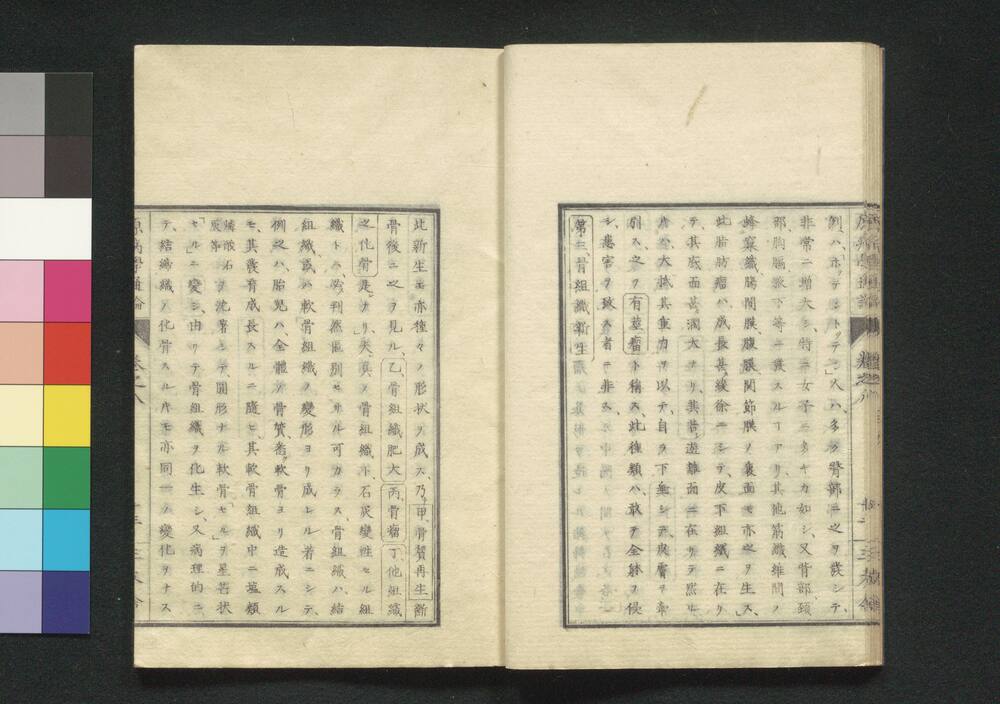 例ハ「ホツテントツテン」人ハ、多ク臀部ニ之ヲ發シテ、
非常ニ増大シ、特ニ女子ニ多キカ如シ、又背部頚
部胸膈腋下等ニ發スルヿアリ、其他筋纖維間ノ
蜂窠織、腸間膜、腹膜、関節膜ノ裏面モ亦之ヲ生ス、
此脂肪瘤ハ成長甚緩徐ニシテ、皮下組織ニ在リ
テ其底面甚濶大ナリ、其甞遊離面ニ在リテ然ル
片ハ、大抵其重力ヲ以テ自ラ下垂シテ皮膚ヲ牽
引ス、之ヲ有莖瘤ト稱ス、此種類ハ、敢テ全躰ヲ侵
シ患害ヲ致ス者ニ非ス、
第三骨組織新生
此新生モ亦種々ノ形状ヲ成ス、乃甲骨質再生断
骨後ニ之ヲ見ル、乙骨組織肥大丙骨瘤丁他組織
之化骨是ナリ、夫真ノ骨組織ト、石灰變性セル組
織トハ、判然區別セサル可カラス骨組織ハ結
組織或ハ軟骨組織ノ變形ヨリ成レル者ニシテ、
例之ハ、胎兒ハ、全體ノ骨質悉軟骨ヨリ造成スル
モ、其發育成長スルニ隨ヒ其軟骨組織中ニ塩類
燐酸石灰等ヲ沈著シテ圓形ナル軟骨「セル」ハ星芒状
「セル」ニ變シ、由リテ骨組織ヲ化生シ、又病理的ニ
テ、結締織ノ化骨スル片モ亦同一ノ變化ヲナス
原病學通論 卷之八